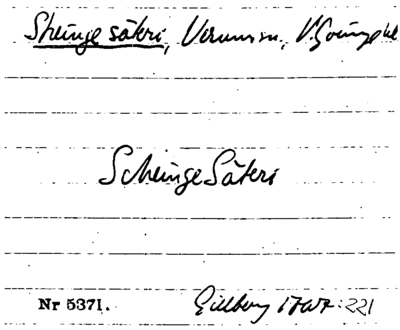 Skeinge säteri, Verums sn., V. Göinge hd
Scheinge Säteri
Nr 5371. Gillberg 1767: 221